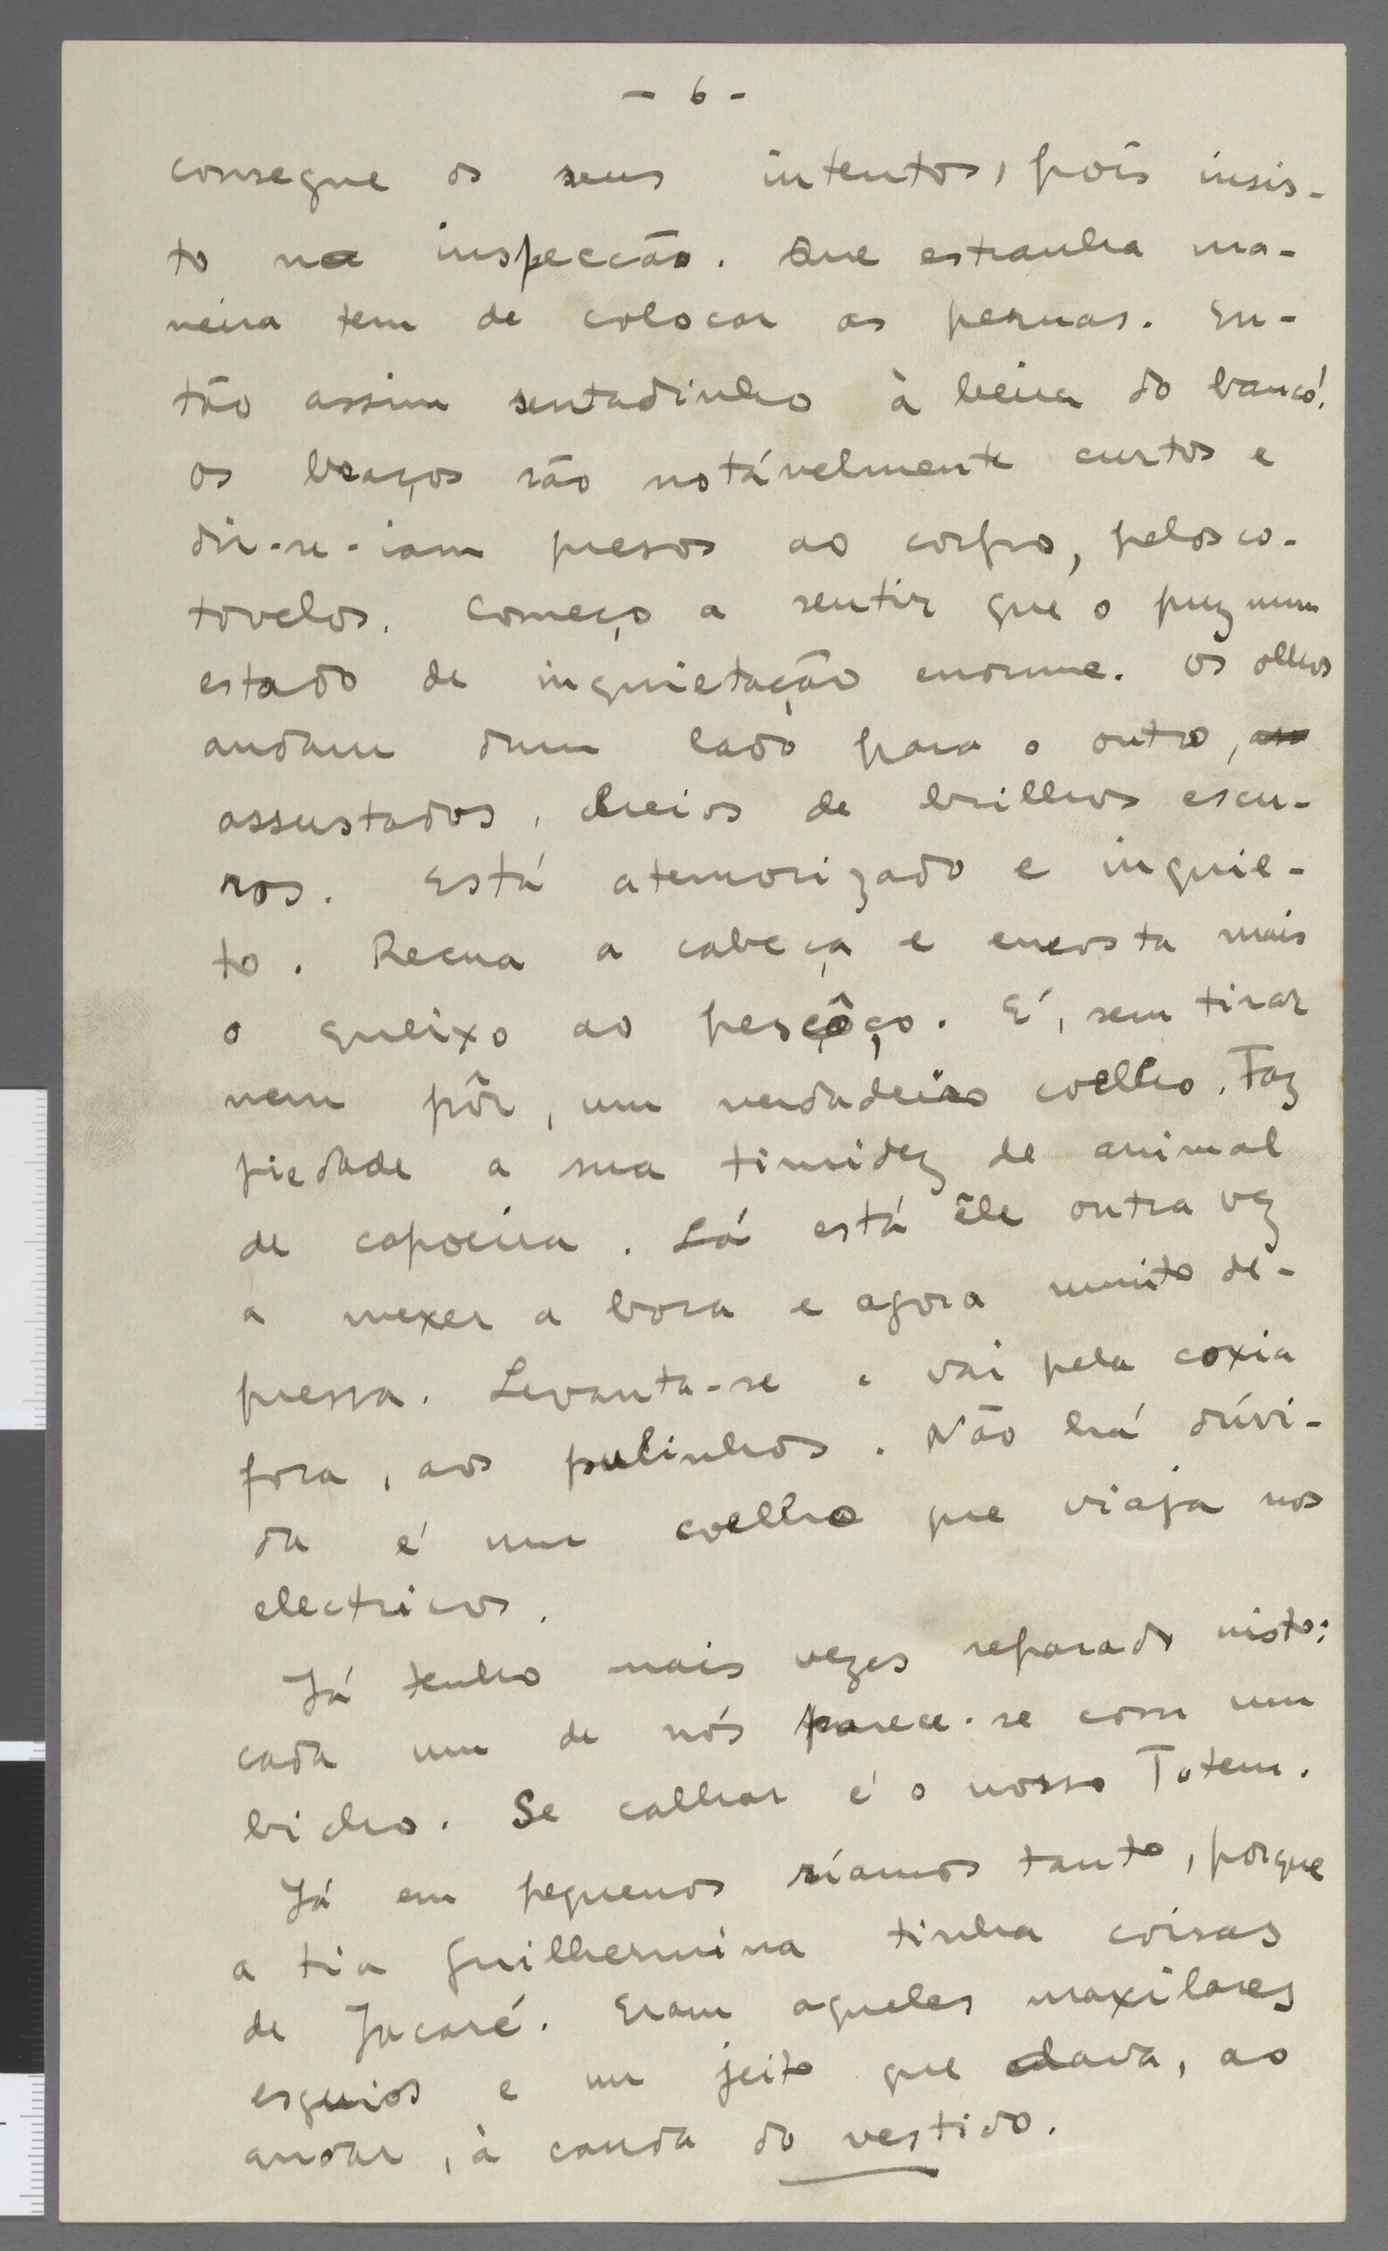 - 6 -
consegue os seus intentos, pois insis-
to na inspecção. Que estranha ma-
neira tem de colocar as pernas. En-
tão assim sentadinho à beira do banco!
Os braços são notávelmente curtos e
dir-se-iam presos ao corpo, pelos co-
tovelos. Começo a sentir que o puz num
estado de inquietação enorme. Os olhos
andam dum lado para o outro,
assustados, cheios de brilhos escu-
ros. Está atemorizado e inquie-
to. Recua a cabeça e encosta mais
o queixo ao pescôço. É, sem tirar
nem pôr, um verdadeiro coelho. Faz
piedade a sua timidez de animal
de capoeira. Lá está êle outra vez
a mexer a boca e agora muito de-
pressa. Levanta-se e vai pela coxia
fora, aos pulinhos. Não há dúvi-
da é um coelho que viaja nos
electricos.
Já tenho mais vezes reparado nisto:
cada um de nós parece-se com um
bicho. Se calhar é o nosso Totem.
Já em pequenos riamos tanto, porque
a tia Guilhermina tinha coisas
de Jacaré. Eram aqueles maxilares
esguios e um jeito que dava, ao
andar, à cauda do vestido.